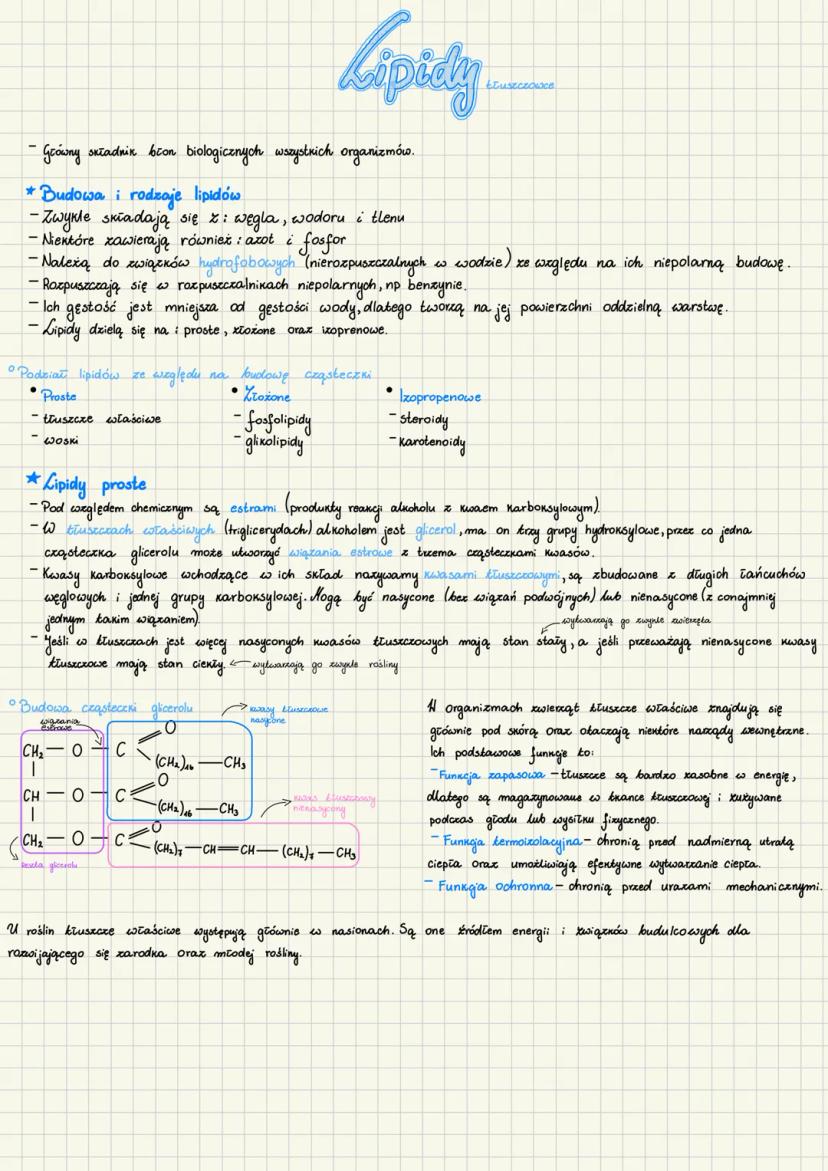 Lipidy tłuszczowce
- Główny składnik błon biologicznych wszystkich organizmów.
* Budowa i rodzaje lipidów
- Zwykle składają się z: węgla, wodoru i tlenu
- Niektóre zawierają również: azot i fosfor
- Należą do związków hydrofobowych (nierozpuszczalnych w wodzie) ze względu na ich niepolarną budowę.
- Rozpuszczają się w rozpuszczalnikach niepolarnych, np benzynie.
- Ich gęstość jest mniejsza od gęstości wody, dlatego tworzą na jej powierzchni oddzielną warstwę.
- Lipidy dzielą się na: proste, złożone oraz izoprenowe.
° Podział lipidów ze względu na budowę cząsteczki
• Proste • Złożone • Izopropenowe
- tłuszcze właściwe - fosfolipidy - steroidy
- woski - glikolipidy - karotenoidy
* Lipidy proste
- Pod względem chemicznym są estrami (produkty reakcji alkoholu z kwaem karboksylowym).
- W tłuszczach właściwych (triglicerydach) alkoholem jest glicerol, ma on trzy grupy hydroksylowe, przez co jedna
cząsteczka glicerolu może utworzyć wiązania estrowe z trzema cząsteczkami kwasów.
- Kwasy karboksylowe wchodzące w ich skład nazywamy kwasami tłuszczowymi, są zbudowane z długich łańcuchów
węglowych i jednej grupy karboksylowej. Mogą być nasycone (bez wiązań podwójnych) lub nienasycone (z conajmniej
jednym takim wiązaniem).
wytwarzają go zwykle zwierzęta
- Jeśli w tłuszczach jest więcej nasyconych kwasów tłuszczowych mają stan stały, a jeśli przeważają nienasycone kwasy
tłuszczowe mają stan ciekły. wytwarzają go zwykle rośliny
° Budowa cząsteczki glicerolu
wiązania
estrowe
kwasy tłuszczowe
nasycone
O
CH₂ — O — C
(CH₂)₁₆ — CH₃
O
CH — O — C
(CH₂)₁₆ — CH₃
kwas tłuszczowy
nienasycony
O
CH₂ — O — C
(CH₂)₇ — CH = CH — (CH₂)₇ — CH₃
reszta glicerolu
W organizmach zwierząt tłuszcze właściwe znajdują się
głównie pod skórą oraz otaczają niektóre narządy wewnętrzne.
Ich podstawowe funkcje to:
- Funkcja zapasowa - tłuszcze są bardzo zasobne w energię,
dlatego są magazynowane w tkance tłuszczowej i zużywane
podczas głodu lub wysiłku fizycznego.
- Funkcja termoizolacyjna - chronią przed nadmierną utratą
ciepła oraz umożliwiają efektywne wytwarzanie ciepła.
- Funkcja ochronna - chronią przed urazami mechanicznymi.
U roślin tłuszcze właściwe występują głównie w nasionach. Są one źródłem energii i związków budulcowych dla
rozwijającego się zarodka oraz młodej rośliny.